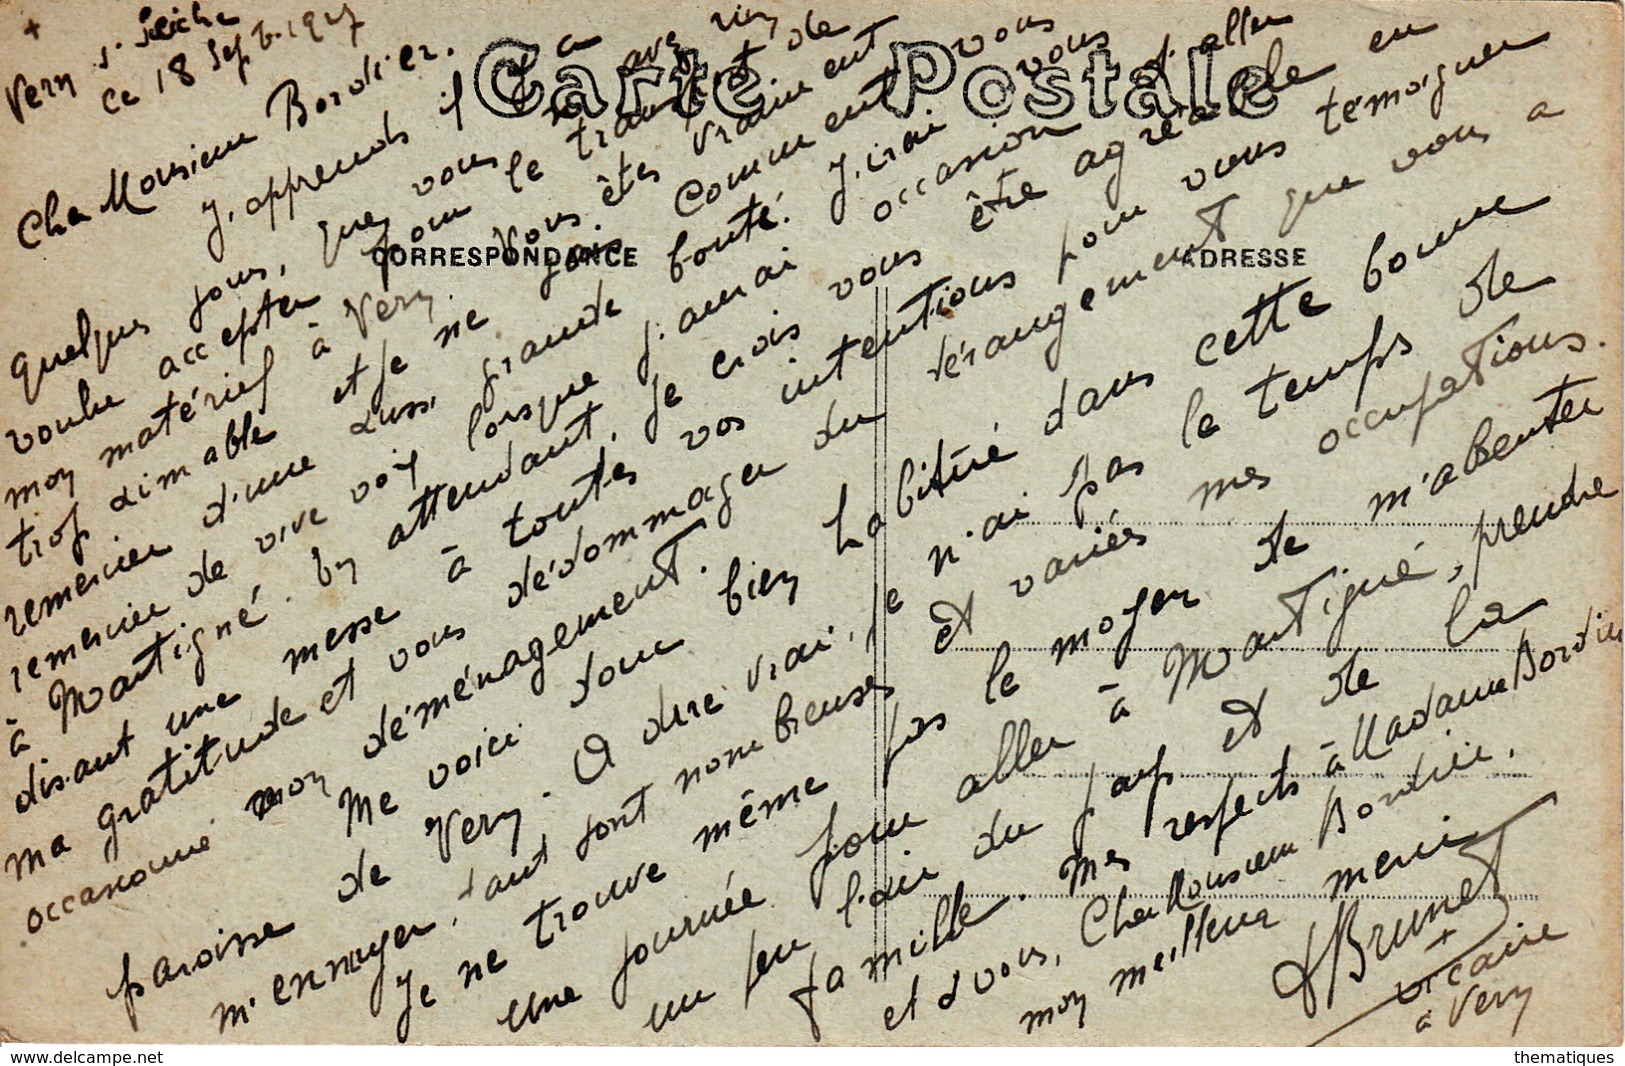 +
Vern s. Seiche
ce 18 Sept. 1927
Carte Postale
CORRESPONDANCE
ADRESSE
Cher Monsieur Bordier.
J'apprends il y a
quelques jours, que vous avez bien
voulu accepter pour le transport de
mon matériel à Vern. Vous êtes vraiment
trop aimable et je ne sais comment vous
remercier d'une aussi grande bonté. J'irai vous
remercier de vive voix lorsque j'aurai occasion d'aller
à Martigné. En attendant, je crois vous être agréable en
disant une messe à toutes vos intentions pour vous témoigner
ma gratitude et vous dédommager du dérangement que vous a
occasionné mon déménagement.
Me voici donc bien habitué dans cette bonne
paroisse de Vern. A dire vrai, je n'ai pas le temps de
m'ennuyer, tant sont nombreuses et variées mes occupations.
Je ne trouve même pas le moyen de m'absenter
une journée pour aller à Martigné, prendre
un peu l'air du pays et de la
famille. Mes respects à Madame Bordier
et à vous, Cher Monsieur Bordier,
mon meilleur merci
Brunet
+
vicaire
à Vern
www.delcampe.net
thematiques